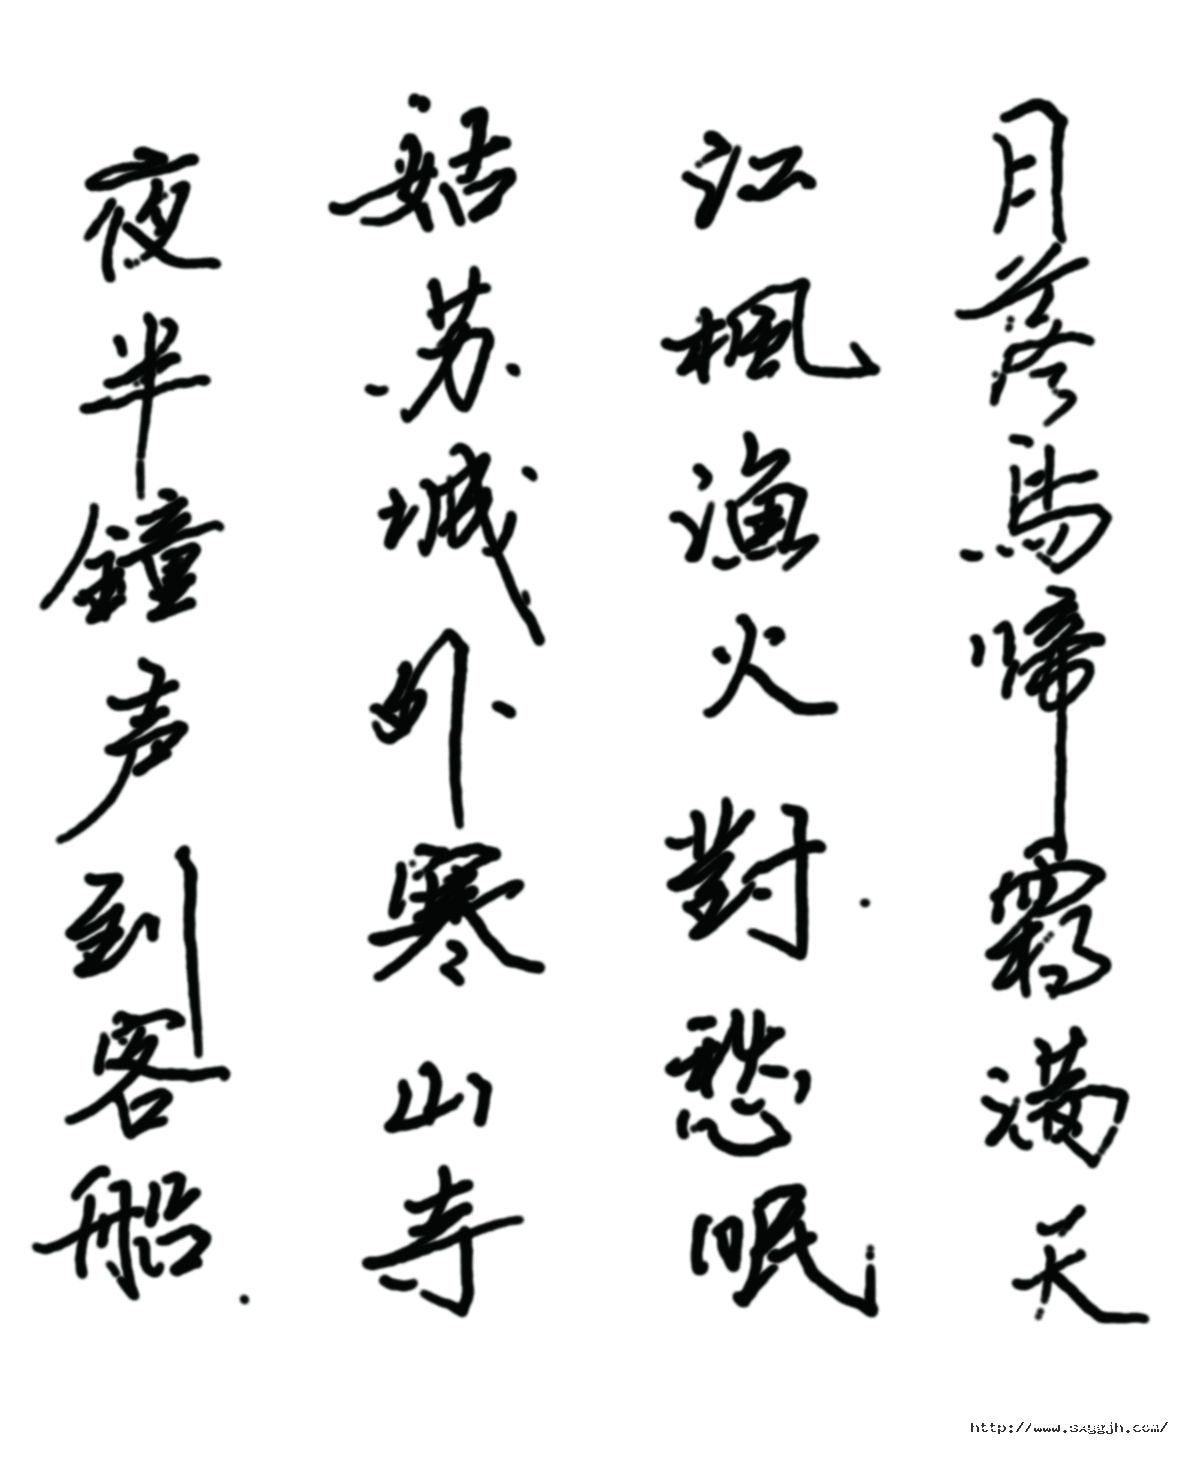 月落烏啼霜满天
江楓漁火對愁眠
姑苏城外寒山寺
夜半鐘声到客船
http://www.sxggjh.com/